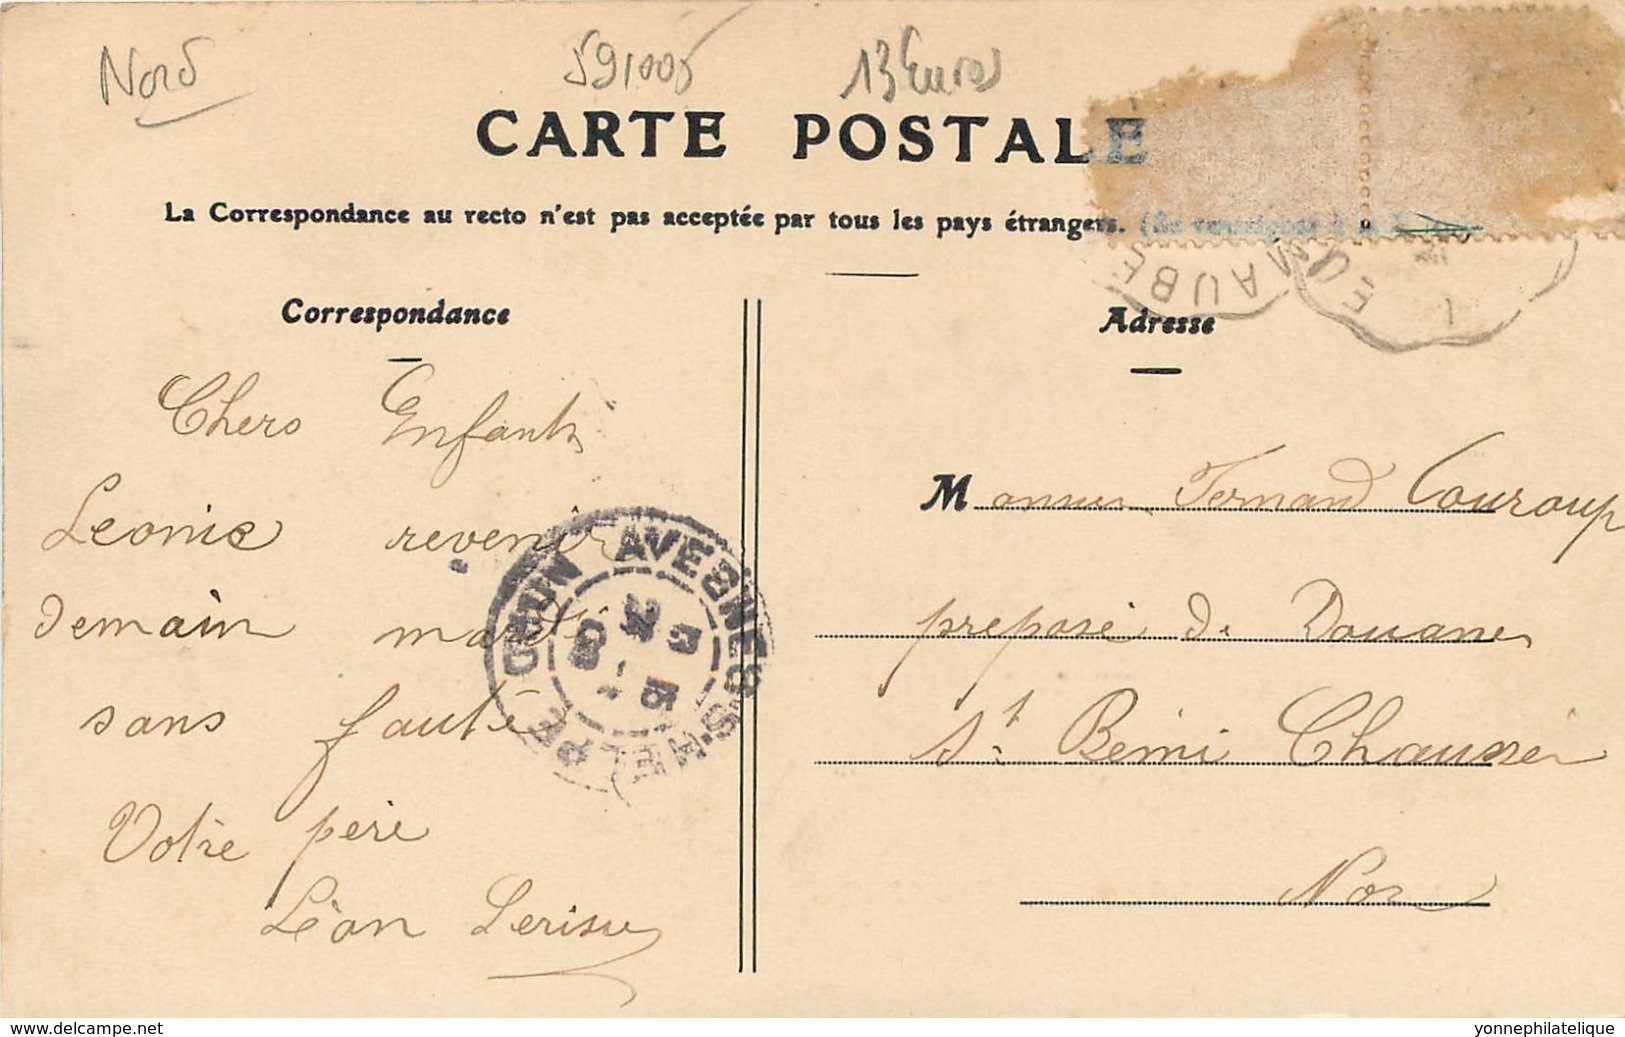 Nord
591005
13 Euros
CARTE POSTALE
La Correspondance au recto n'est pas acceptée par tous les pays étrangers. (Se renseigner à la
MAUBEU
Correspondance
Adresse
Chers Enfants
Leonie revenir
demain mardi
sans faute
Votre père
Léon Lerisu
AVESNES-S-HELPE NORD
Monsieur Fernand Couroup
préposé de Douanes
St Remi Chaussée
Nord
www.delcampe.net
yonnephilatelique